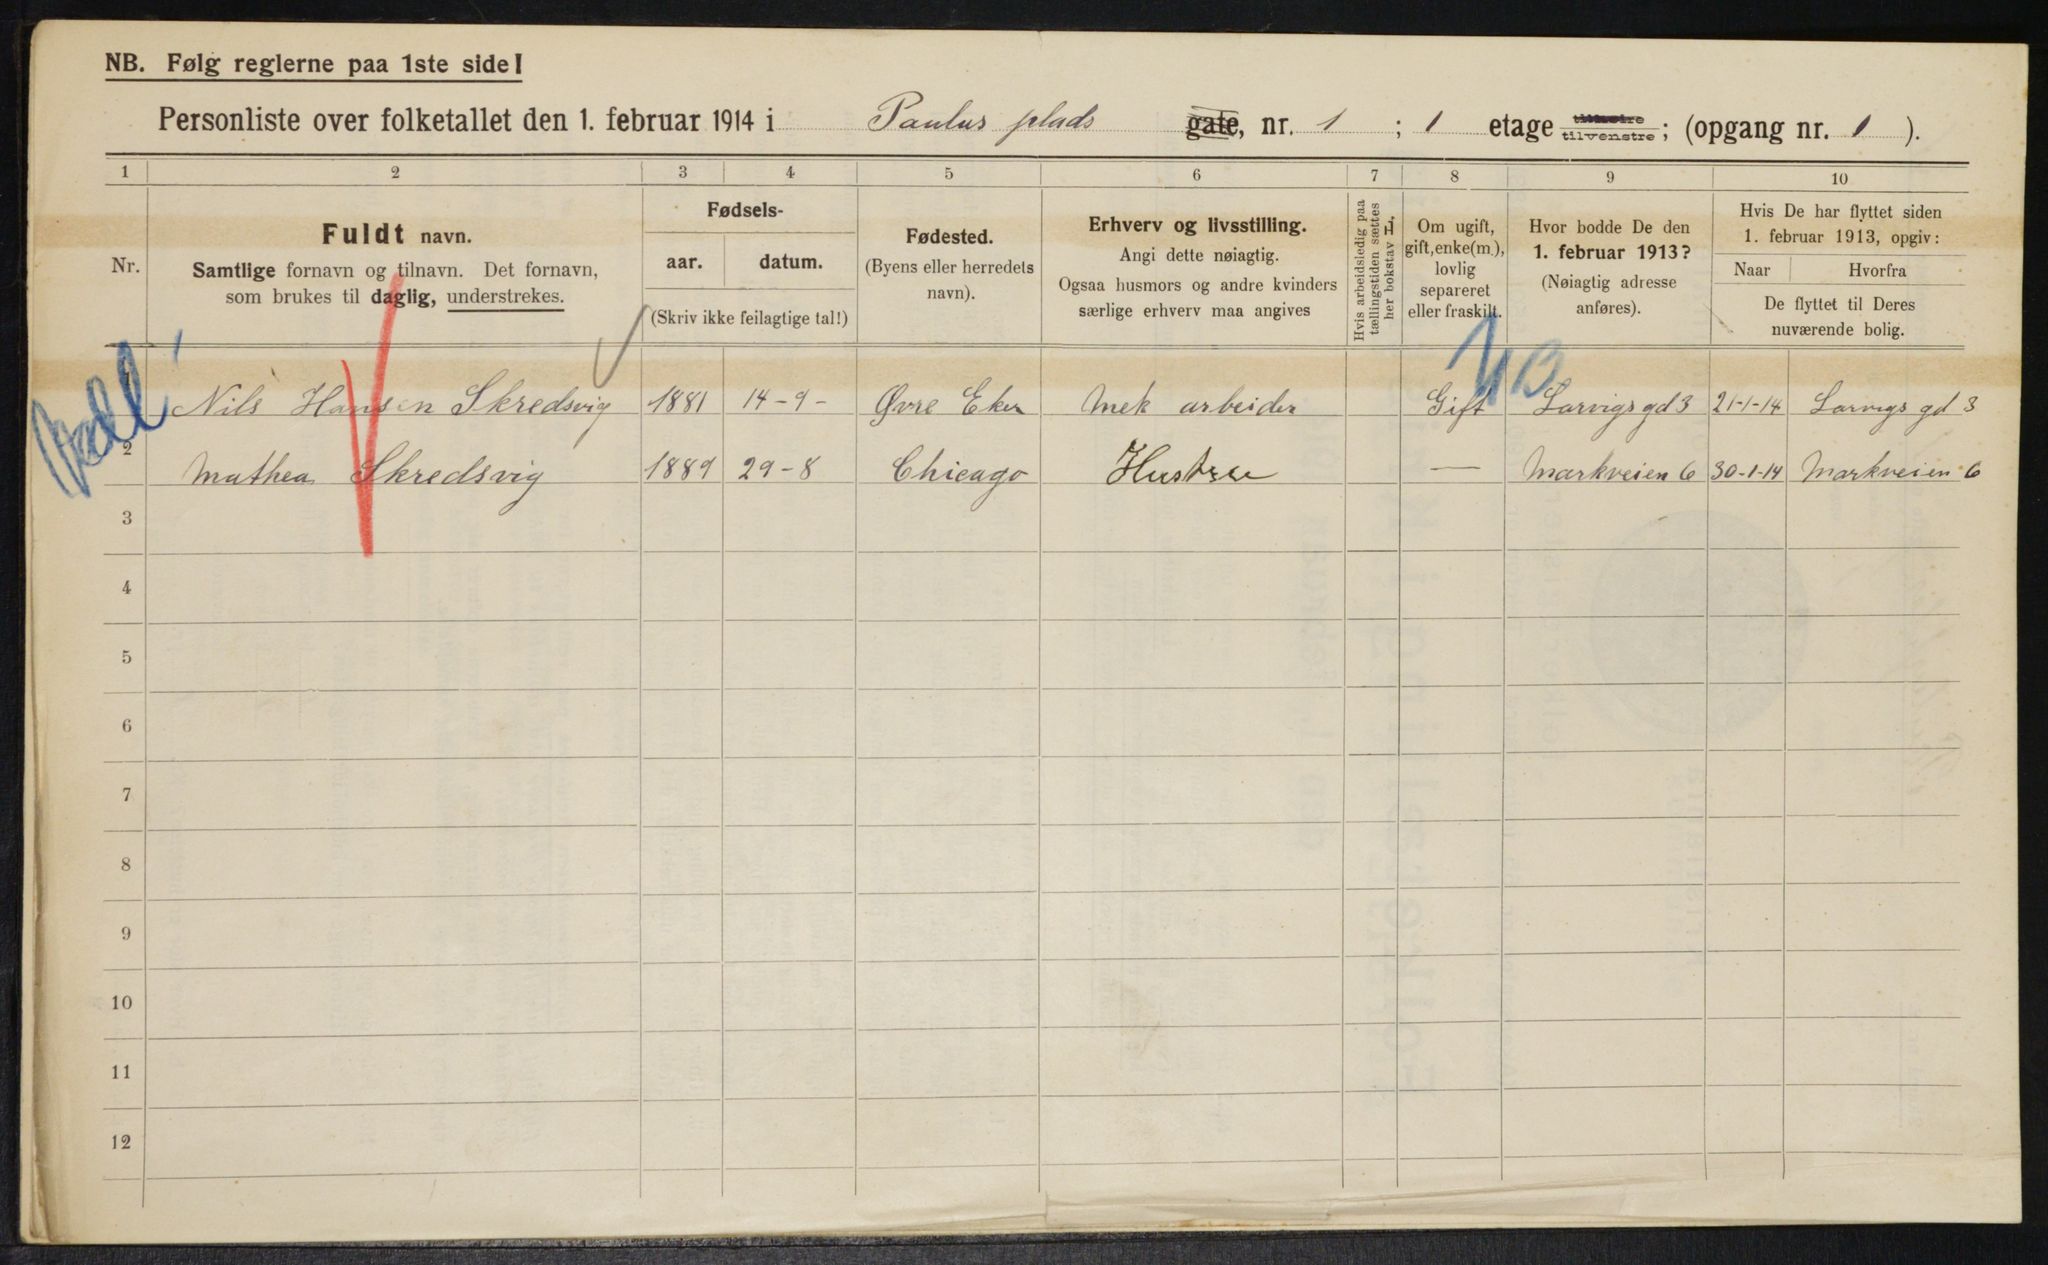 NB. Følg reglerne paa 1ste side!
Personliste over folketallet den 1. februar 1914 i Paulus plads gate, nr. 1 ; 1 etage tilvenstre; (opgang nr. 1 ).
1 2 3 4 5 6 7 8 9 10
Nr.
Fuldt navn.
Samtlige fornavn og tilnavn. Det fornavn,
som brukes til daglig, understrekes.
Fødsels-
aar. datum.
(Skriv ikke feilagtige tal!)
Fødested.
(Byens eller herredets
navn).
Erhverv og livsstilling.
Angi dette nøiagtig.
Ogsaa husmors og andre kvinders
særlige erhverv maa angives
Hvis arbeidsledig paa
tællingstiden sættes
her bokstav L.
Om ugift,
gift, enke(m.),
lovlig
separeret
eller fraskilt.
Hvor bodde De den
1. februar 1913?
(Nøiagtig adresse
anføres).
Hvis De har flyttet siden
1. februar 1913, opgiv:
Naar Hvorfra
De flyttet til Deres
nuværende bolig.
1 Nils Hansen Skredsvig 1881 14-9- Øvre Eker Mek arbeider Gift Larvigs gd 3 21-1-14 Larvigs gd 3
2 Mathea Skredsvig 1889 29-8 Chicago Hustru — Markveien 6 30-1-14 Markveien 6
3
4
5
6
7
8
9
10
11
12